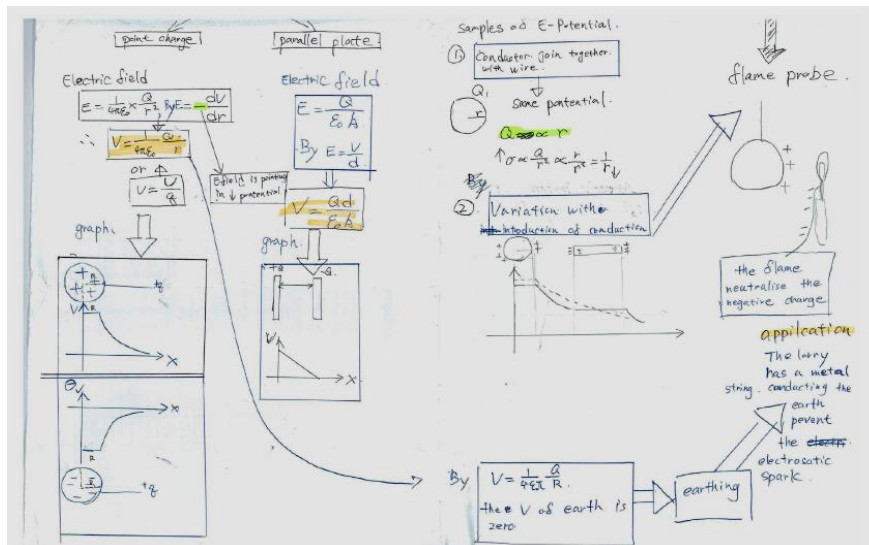 point charge
Electric field
E = 1/4πε₀ × Q/r² By E = - dV/dr
∴ V = 1/4πε₀ Q/r
or
V = U/q
E field is pointing
in ↓ potential
graph.
+
+
+ +
R
+q
V
R
x
V
x
R
- -
- -
R
+q
parallel plate
Electric field.
E = Q/ε₀A
By E = V/d.
V = Qd/ε₀A
graph.
+Q -Q
V
x
Samples of E-Potential.
① Conductor join together
with wire.
Q₁
r
Same potential.
Q ∝ r
↑σ ∝ Q/r² ∝ r/r² = 1/r↓
② Variation with
intoduction of conduction
flame probe.
+
+
+
the flame
neutralise the
negative charge
appilcation
The lorry
has a metal
string. conducting the
earth
pevent
the electri.
electrosatic
spark.
By
V = 1/4επ Q/R.
the V of earth is
zero
earthing